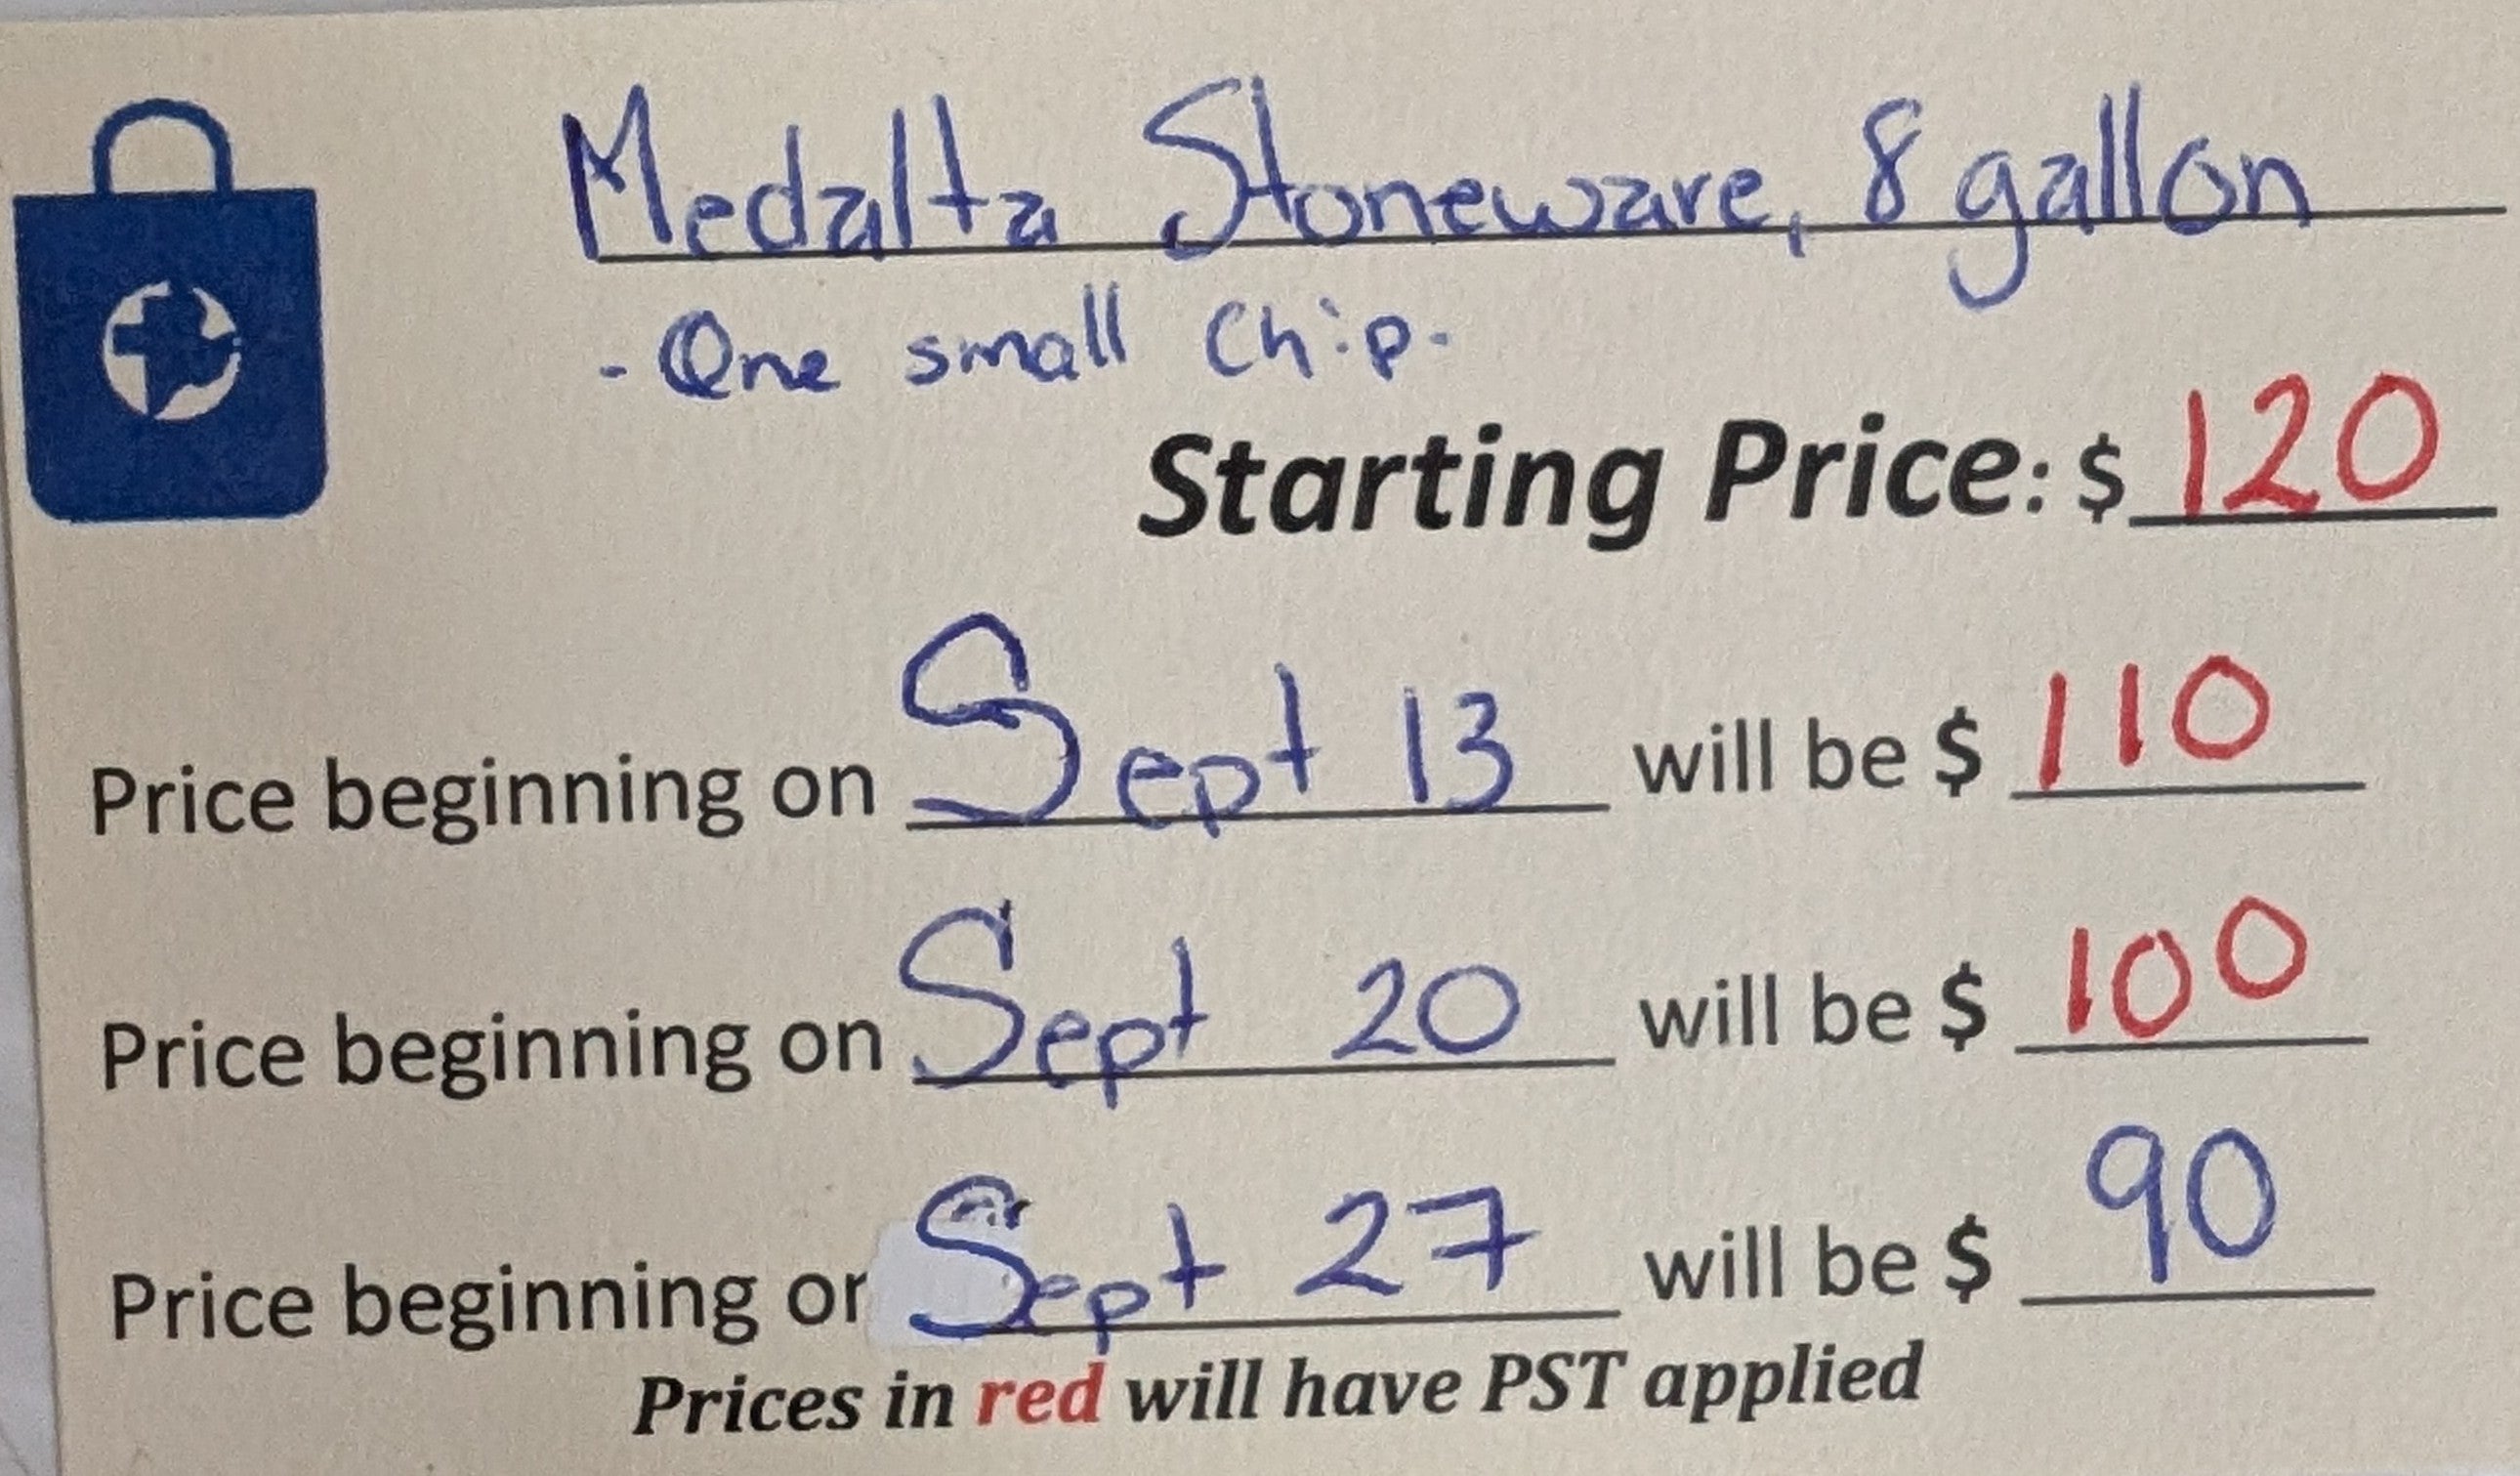 Medalta Stoneware, 8 gallon
- One small chip.
Starting Price: $ 120
Price beginning on Sept 13 will be $ 110
Price beginning on Sept 20 will be $ 100
Price beginning or Sept 27 will be $ 90
Prices in red will have PST applied